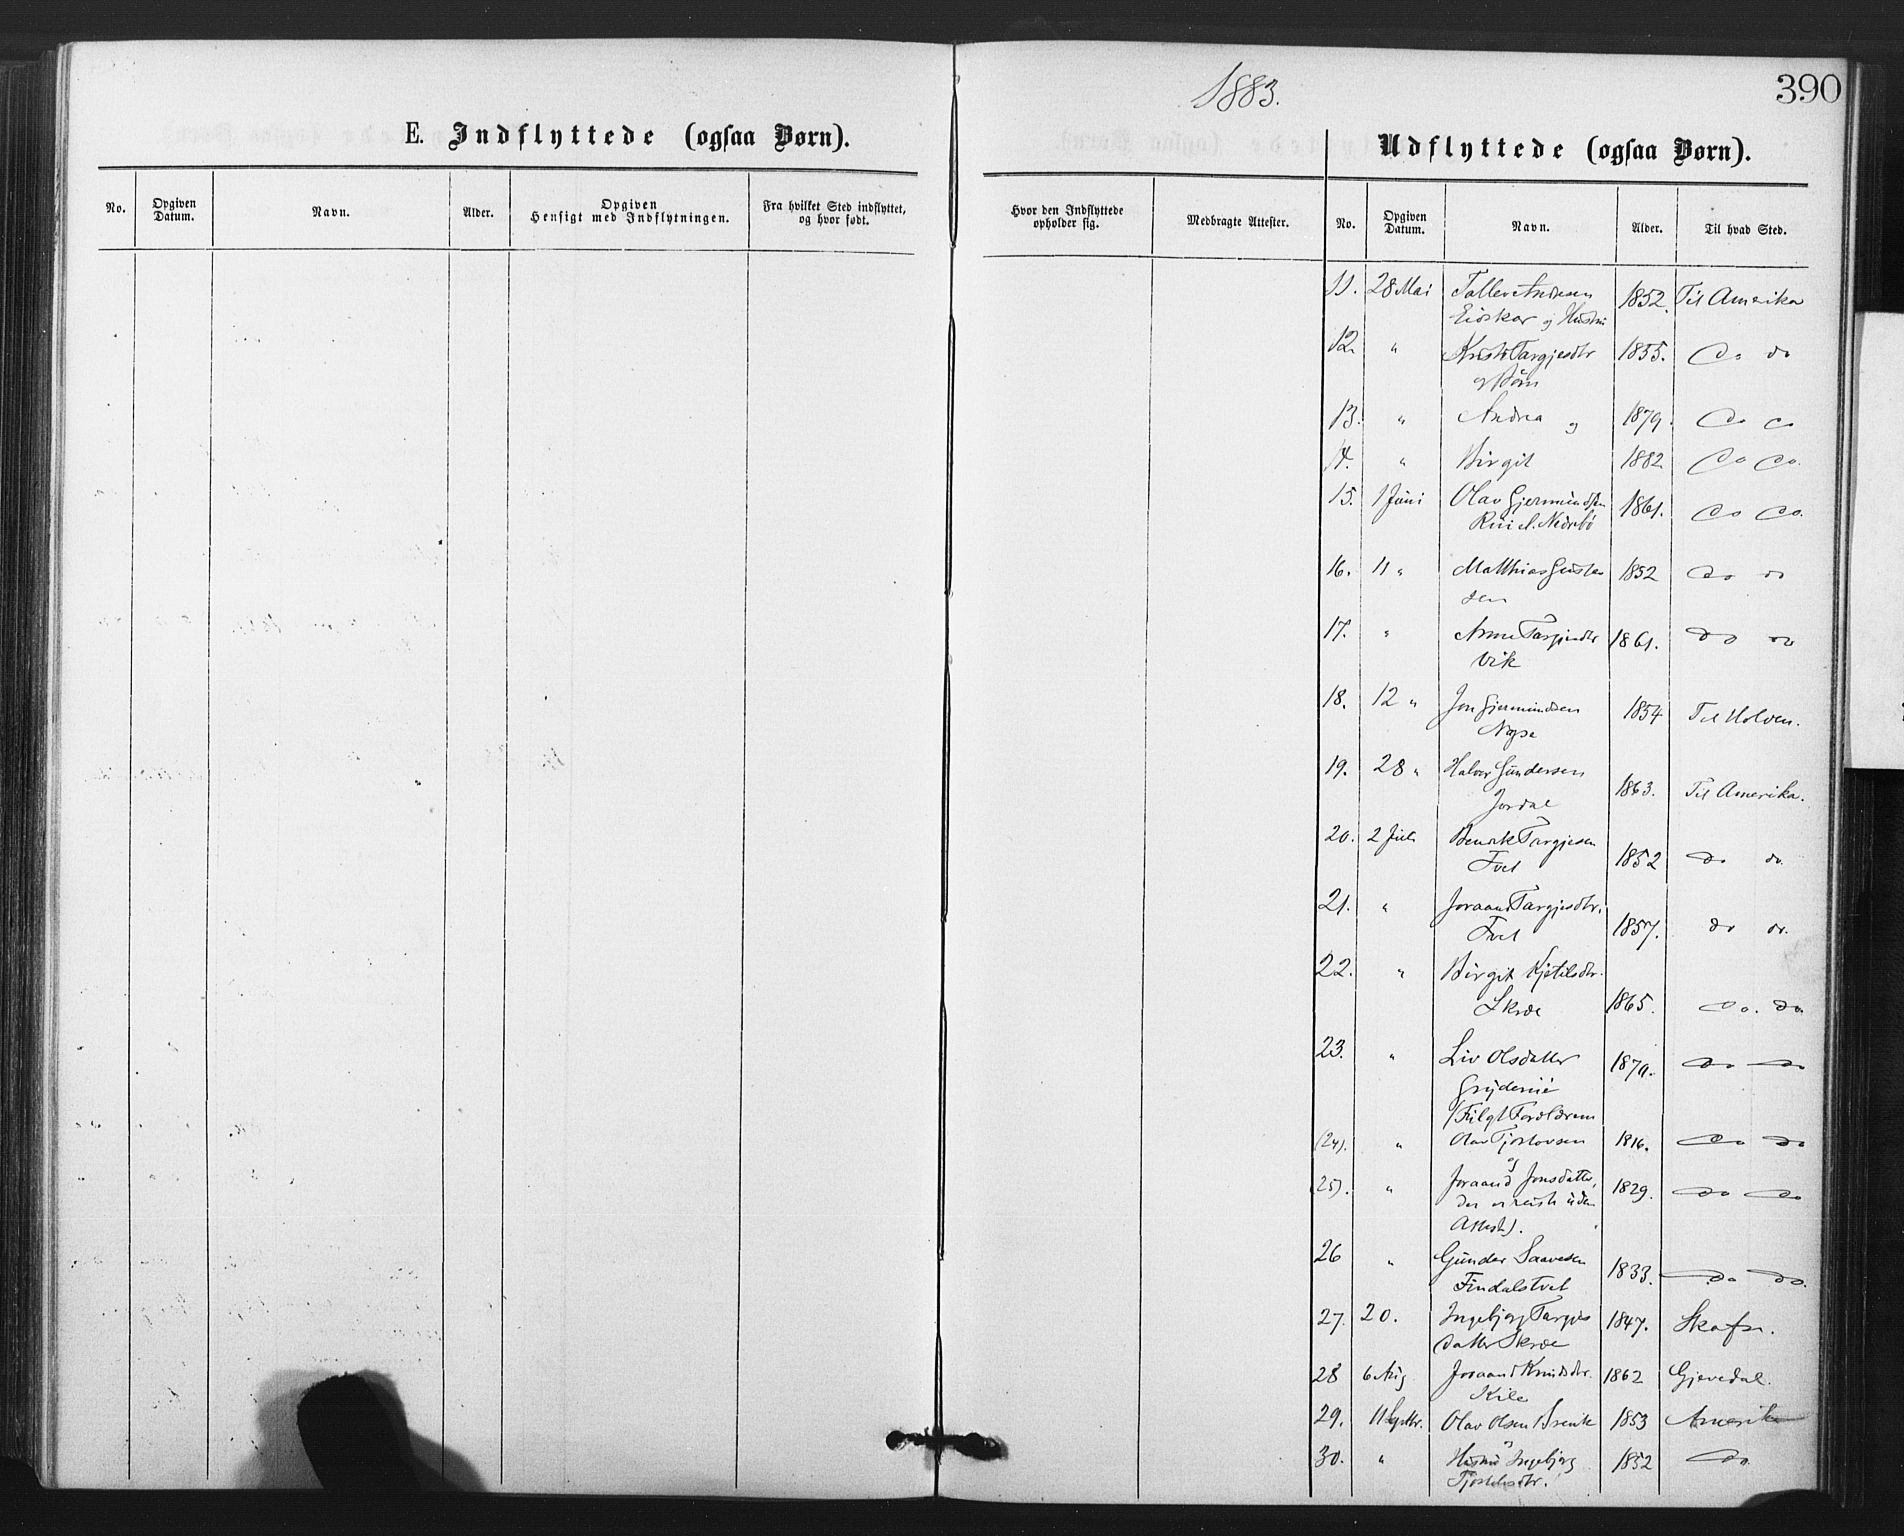 390
1883.
E. Indflyttede (ogsaa Børn).
Udflyttede (ogsaa Børn).
No. Opgiven Datum. Navn. Alder. Opgiven Hensigt med Indflytningen. Fra hvilket Sted indflyttet, og hvor født.
Hvor den Indflyttede opholder sig. Medbragte Attester. No. Opgiven Datum. Navn. Alder. Til hvad Sted.
11. 28 Mai 1852. Til Amerika
og Hustru
12. " Targjesdtr 1855. Do do
og Børn
13. " Andrea og 1879. Do Do
14. " Birgit 1882 Do Do.
15. 1 Juni Olav Gjermundsen 1861. Do Do.
16. 11 " Matthias 1852 Do do
sen
17. " 1861. Do do
Vik
18. 12 " Jon Gjermundsen 1854 Til Holden.
19. 28 " Halvor Gundersen 1863. Til Amerika.
Jordal
20. 2 Juli Targjesen 1852 do do.
Tvet
21. " Joraand Targjesdtr. 1857. do do.
Tvet
22. " Birgit Kjetilsdtr. 1865. Do. do
Skræ
23. " Liv Olsdatter 1879. Do Do
(24). " Olav 1816. Do Do
og
25). " Joraand Jonsdatter, 1829. Do Do
der er reist uden
Attest).
26 " Gunder Saavesen 1833. Do Do.
Findalstvet
27. 20. Ingebjørg Targjes 1847.
datter Skræ
28 6 Aug Joraand Knudsdtr. 1862 Gjevedal.
Kile
29. 11 Septbr. Olav Olsen 1853 Amerika
30. " Hustru Ingebjørg 1852 Do.